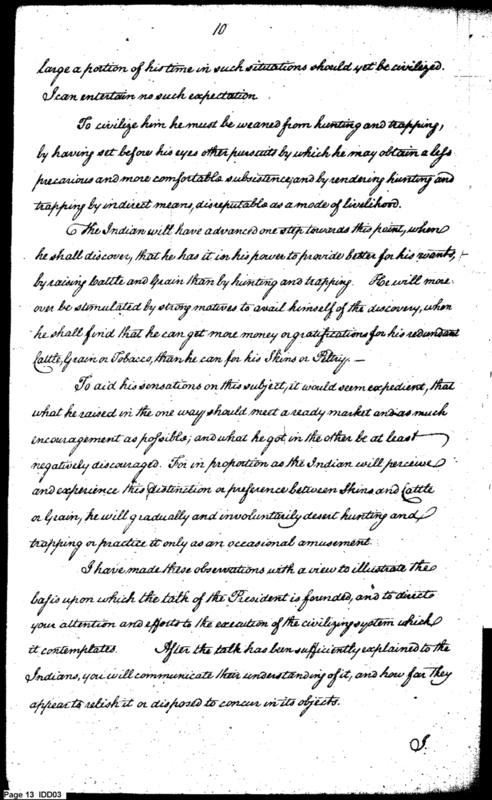 10
large a portion of his time in such situations should yet be civilized.
I can entertain no such expectation.
To civilize him he must be weaned from hunting and trapping,
by having set before his eyes other pursuits by which he may obtain a less
precarious and more comfortable subsistence; and by rendering hunting and
trapping by indirect means, disreputable as a mode of livelihood.
The Indian will have advanced one step towards this point, when
he shall discover, that he has it in his power to provide better for his wants,
by raising Cattle and Grain than by hunting and trapping. He will more
over be stimulated by strong motives to avail himself of the discovery, when
he shall find that he can get more money or gratifications for his redundant
Cattle, Grain or Tobacco, than he can for his Skins or Peltry.—
To aid his sensations on this subject, it would seem expedient, that
what he raised in the one way should meet a ready market and as much
encouragement as possible; and what he got in the other be at least
negatively discouraged. For in proportion as the Indian will perceive
and experience this distinction or preference between Skins and Cattle
or Grain, he will gradually and involuntarily desert hunting and
trapping or practice it only as an occasional amusement.
I have made these observations with a view to illustrate the
basis upon which the talk of the President is founded, and to direct
your attention and efforts to the execution of the civilizing system which
it contemplates. After the talk has been sufficiently explained to the
Indians, you will communicate their understanding of it, and how far they
appear to relish it or disposed to concur in its objects.
I.
Page 13 IDD03